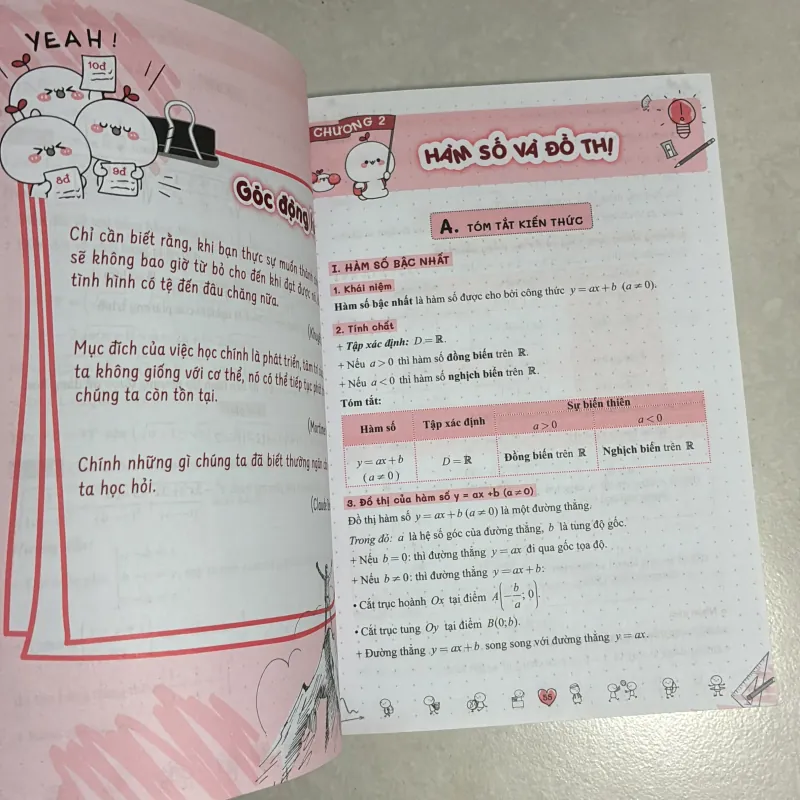 YEAH!
10đ
9đ
8đ
Góc động
Chỉ cần biết rằng, khi bạn thực sự muốn
sẽ không bao giờ từ bỏ cho đến khi đạt được
tình hình có tệ đến đâu chăng nữa.
Mục đích của việc học chính là phát triển, tâm trí
ta không giống với cơ thể, nó có thể tiếp tục
chúng ta còn tồn tại.
Chính những gì chúng ta đã biết thường ngăn
ta học hỏi.
CHƯƠNG 2
HÀM SỐ VÀ ĐỒ THỊ
A. TÓM TẮT KIẾN THỨC
I. HÀM SỐ BẬC NHẤT
1. Khái niệm
Hàm số bậc nhất là hàm số được cho bởi công thức y = ax + b (a ≠ 0).
2. Tính chất
+ Tập xác định: D = ℝ.
+ Nếu a > 0 thì hàm số đồng biến trên ℝ.
+ Nếu a < 0 thì hàm số nghịch biến trên ℝ.
Tóm tắt:
Hàm số Tập xác định Sự biến thiên
a > 0 a < 0
y = ax + b (a ≠ 0) D = ℝ Đồng biến trên ℝ Nghịch biến trên ℝ
3. Đồ thị của hàm số y = ax +b (a ≠ 0)
Đồ thị hàm số y = ax + b (a ≠ 0) là một đường thẳng.
Trong đó: a là hệ số góc của đường thẳng, b là tung độ gốc.
+ Nếu b = 0: thì đường thẳng y = ax đi qua gốc tọa độ.
+ Nếu b ≠ 0: thì đường thẳng y = ax + b:
• Cắt trục hoành Ox tại điểm A(-b/a; 0).
• Cắt trục tung Oy tại điểm B(0; b).
+ Đường thẳng y = ax + b song song với đường thẳng y = ax.
55